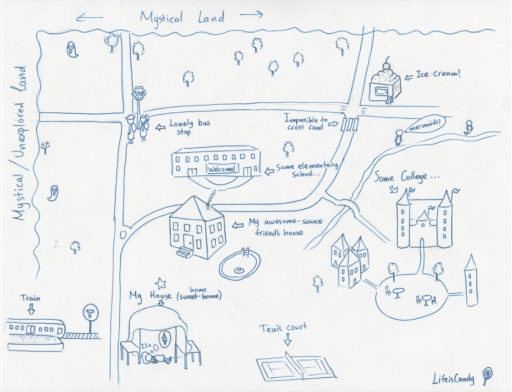 Mystical Land
Mystical / Unexplored Land
Ice cream!
STOP
Lonely bus
stop
Impossible to
cross road
mermaids!
Welcome!
Some elementary
school...
Some College...
My awesome-sauce
friends house
home
My House (sweet-home)
Train
T
Tenis court
LifeisCandy